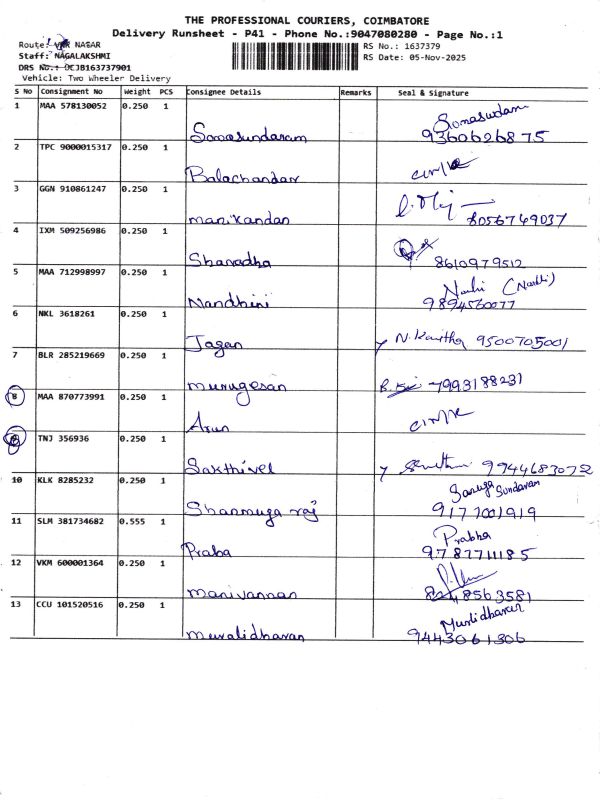 THE PROFESSIONAL COURIERS, COIMBATORE
Delivery Runsheet - P41 - Phone No.:9047080280 - Page No.:1
Route: VKR NAGAR
RS No.: 1637379
Staff: NAGALAKSHMI
RS Date: 05-Nov-2025
DRS No.: DCJB163737901
Vehicle: Two Wheeler Delivery
S No Consignment No Weight PCS Consignee Details Remarks Seal & Signature
1 MAA 578130052 0.250 1
Somasundaram Somasundam
9360626875
2 TPC 9000015317 0.250 1
Balachandar
3 GGN 910861247 0.250 1
manikandan 8056749037
4 IXM 509256986 0.250 1
Sharadha 8610979512
5 MAA 712998997 0.250 1
Nandhini 9894560077
6 NKL 3618261 0.250 1
Jagan N. Kavitha 9500705001
7 BLR 285219669 0.250 1
murugesan 7993188231
8 MAA 870773991 0.250 1
Arun
9 TNJ 356936 0.250 1
Sakthivel 9944683072
10 KLK 8285232 0.250 1
Shanmuga raj Sundaran
9177001919
11 SLM 381734682 0.555 1
Praba Prabha
9787711185
12 VKM 600001364 0.250 1
manivannan 8563581
13 CCU 101520516 0.250 1
muralidharan Murlidharan
9443061306